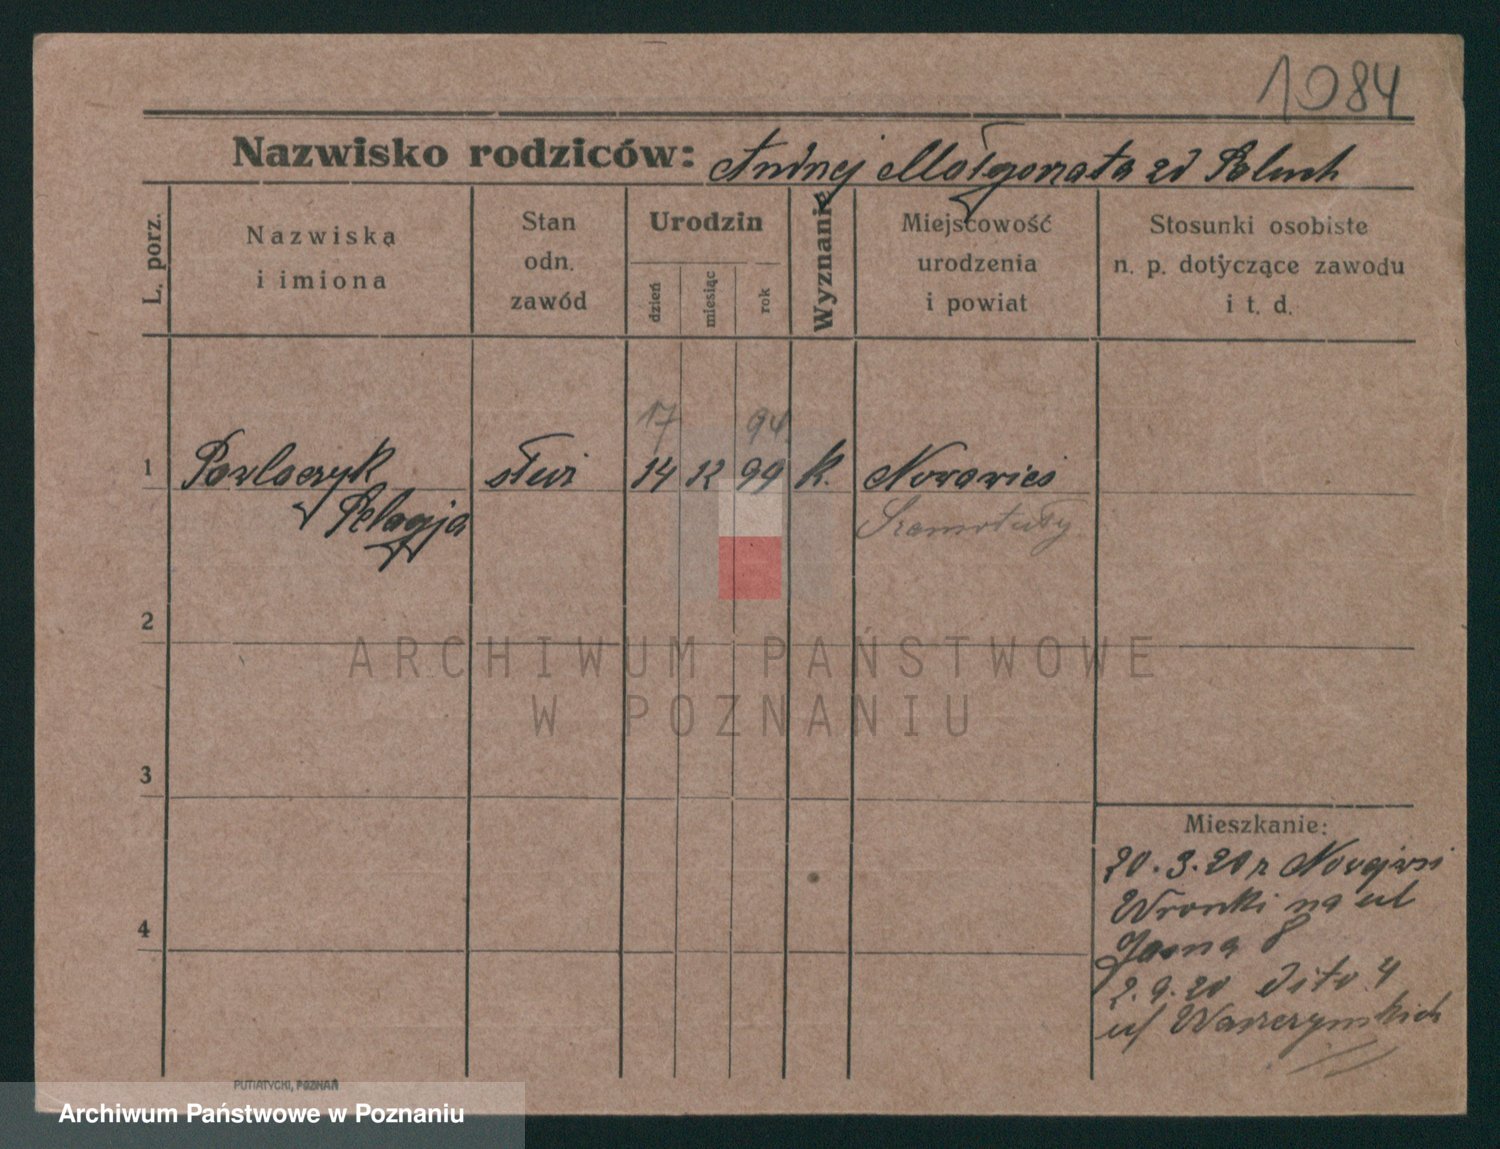 1084
Nazwisko rodziców: Andrzej Małgorzata zd Paluch
L. porz.
Nazwiska
i imiona
Stan
odn.
zawód
Urodzin
dzień
miesiąc
rok
Wyznanie
Miejscowość
urodzenia
i powiat
Stosunki osobiste
n. p. dotyczące zawodu
i t. d.
17 94
1 Pawlaczyk służ 14 12 99 k. Nowawieś
Pelagja Szamotuły
2
ARCHIWUM PAŃSTWOWE
W POZNANIU
3
Mieszkanie:
20.3.20 z Nowejwsi
Wronki na ul
4
Jasna 8
2.9.20 dito 4
ul
PUTIATYCKI, POZNAŃ
Archiwum Państwowe w Poznaniu